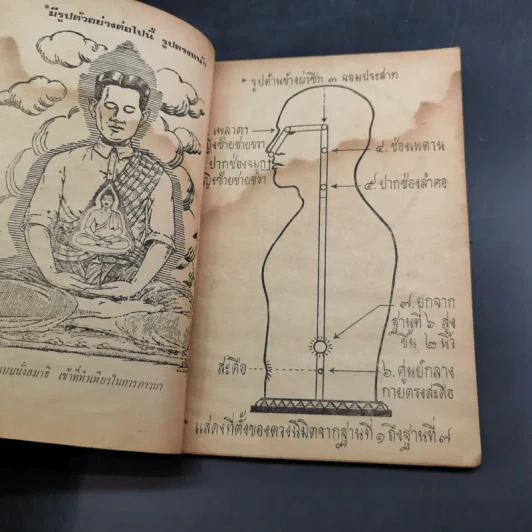 *มีรูปตัวอย่างต่อไปนี้ รูปตรงหน้า
แบบนั่งสมาธิ เข้าที่ทำเพียรในการภาวนา
* รูปด้านข้างผ่าซีก ๓ จอมประสาท
เพลาตา
หญิงซ้ายชายขวา
ปากช่องจมูก
หญิงซ้ายชายขวา
๔. ช่องเพดาน
๕. ปากช่องลำคอ
๗. ยกจาก
ฐานที่ ๖ สูง
ขึ้น ๒ นิ้ว
สะดือ
๖. ศูนย์กลาง
กายตรงสะดือ
* แสดงที่ตั้งของดวงนิมิตจากฐานที่ ๑ ถึงฐานที่ ๗